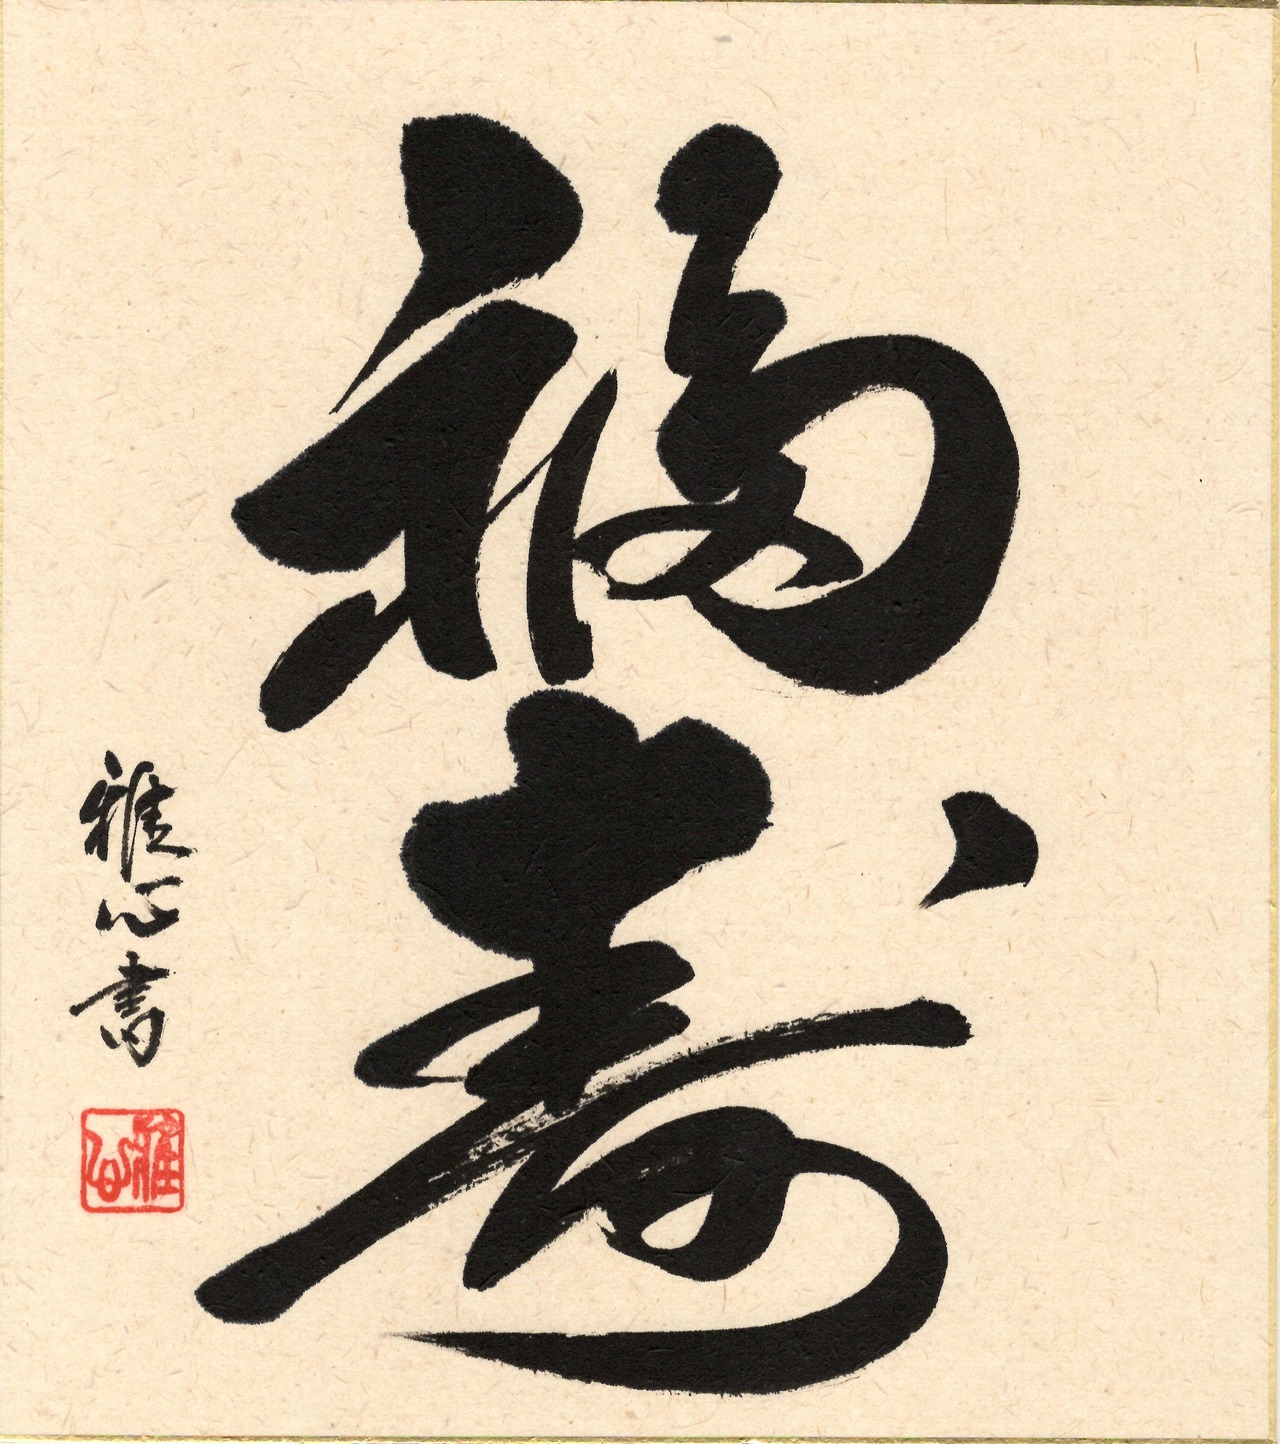 福寿
雅心書